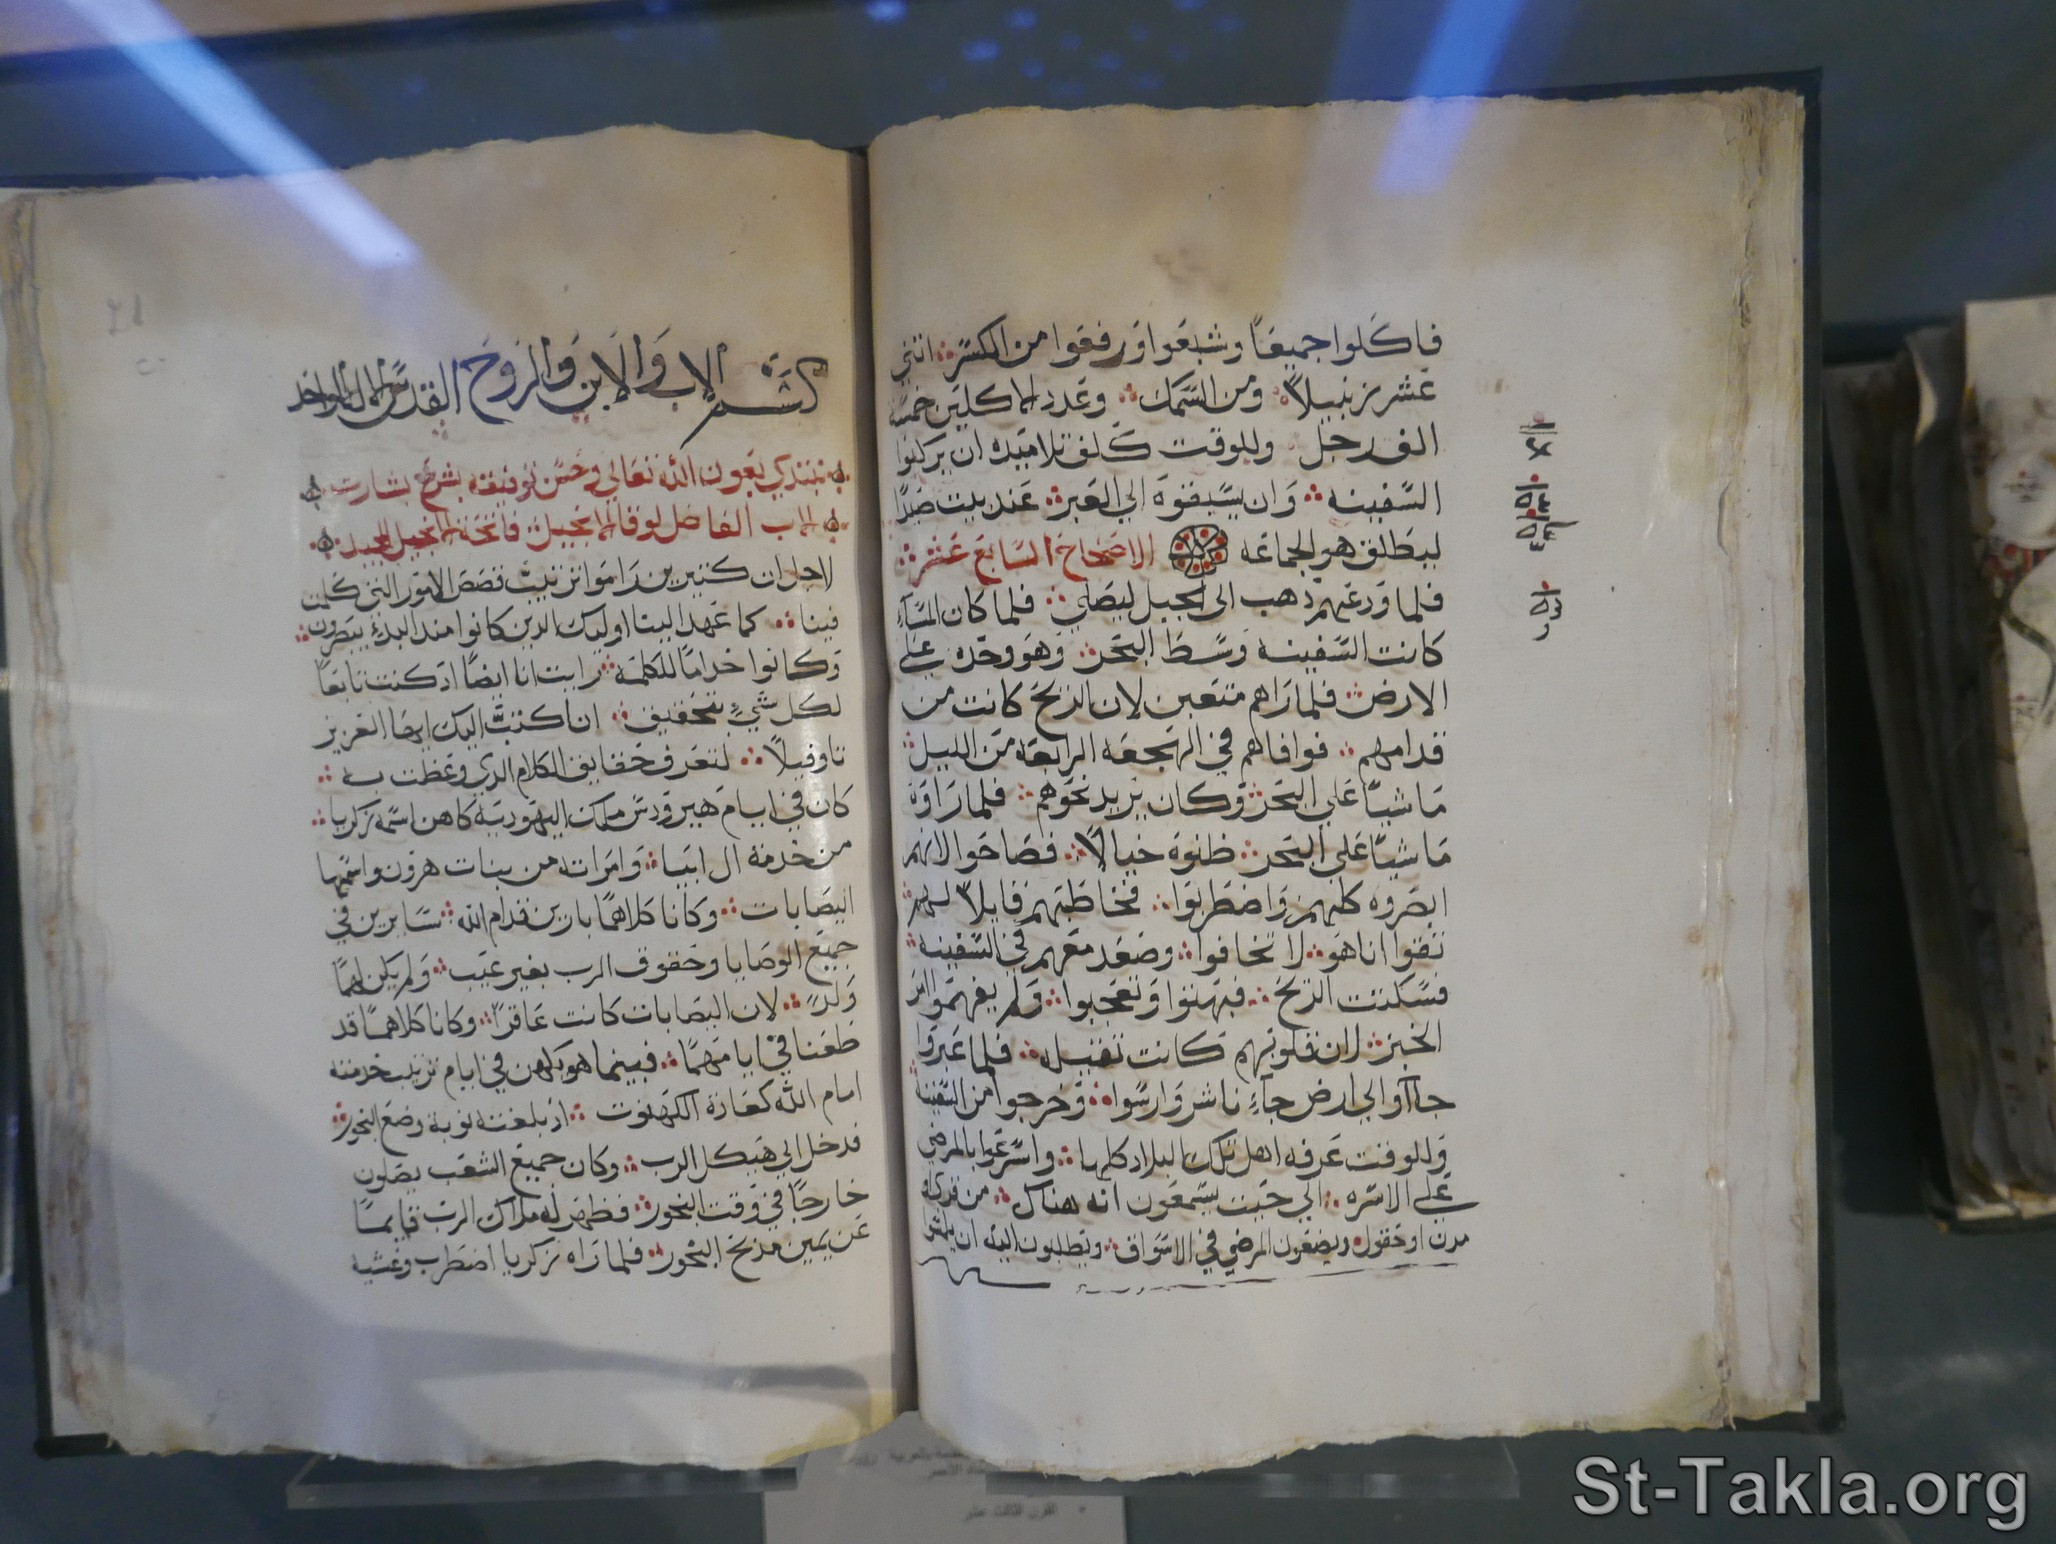 فاكلوا جميعًا وشبعوا ورفعوا من الكسر اثني
عشر زنبيلاً ومن السمك وعدد الاكلين خمسة
الف رجل وللوقت كلف تلاميده ان يركبوا
السفينه وان يسبقوه الي العبر عند بيت صيدا
ليطلق هو الجماعه الاصحاح السابع عشر
فلما ودعهم ذهب الى الجبل ليصلي فلما كان المسآء
كانت السفينه وسط البحر وهو وحده علي
الارض فلما راهم متعبين لان الريح كانت من
قدامهم فوافاهم في الهجعه الرابعه من الليل
ماشيًا علي البحر وكان يريد نحوهم فلما راوه
ماشيًا علي البحر ظنوه خيالاً فصاحوا لانهم
ابصروه كلهم واضطربوا فخاطبهم قايلاً لهم
تقوا انا هو لا تخافوا وصعد معهم في السفينه
فسكنت الريح فبهتوا وتعجبوا ولم يفهموا امر
الخبز لان قلوبهم كانت تقيله فلما عبروا
جاآوا الي ارض جآء ناشر وارسوا وخرجوا من السفينه
وللوقت عرفه اهل تلك البلاد كلها واسرعوا بالمرضي
علي الاسره الي حيت يسمعون انه هناك من قري او
مدن او حقول ويضعون المرضي في الاسواق ويطلبون اليه ان يلمسوا
بسم الاب والابن والروح القدس الاله الواحد
نبتدي بعون الله تعالي وحسن توفيقه بشرح بشارت
الاب الفاضل لوقا الانجيل فاتحة الانجيل المجيد
لاجل ان كتيرين راموا ترتيب قصص الامور التي كملت
فينا كما عهد الينا اوليك الدين كانوا مند البدء ينظرون
وكانوا خدامًا للكلمة رايت انا ايضًا اد كنت تابعًا
لكل شيءٍ بتحقيق ان اكتب اليك ايها العزيز
تاوفيلاً لتعرف حقايق الكلام الدي وعظت به
كان في ايام هيرودس ملك اليهودية كاهن اسمه زكريا
من خدمة ال ابيا وامراته من بنات هرون واسمها
اليصابات وكانا كلاهما بارين قدام الله سايرين في
جميع الوصايا وحقوق الرب بغير عيب ولم يكن لهما
ولدٌ لان اليصابات كانت عاقرًا وكانا كلاهما قد
طعنا في ايامهما فبينما هو يكهن في ايام ترتيب خدمته
امام الله كعادة الكهنوت اذ بلغته نوبة وضع البخور
فدخل الي هيكل الرب وكان جميع الشعب يصلون
خارجًا في وقت البخور فظهر له ملاك الرب قايمًا
عن يمين مذبح البخور فلما راه زكريا اضطرب وغشيه
القرن الثالث عشر
St-Takla.org